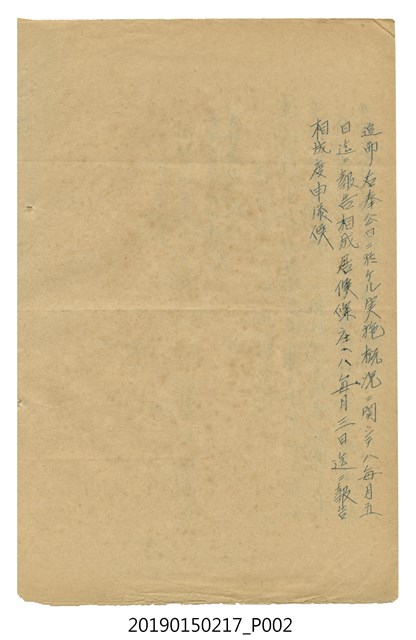 追而右奉公日ニ於ケル実施概況ニ関シテハ毎月五
日迄ニ報告相成居候條庄ハ毎月三日迄ニ報告
相成度申添候
20190150217_P002